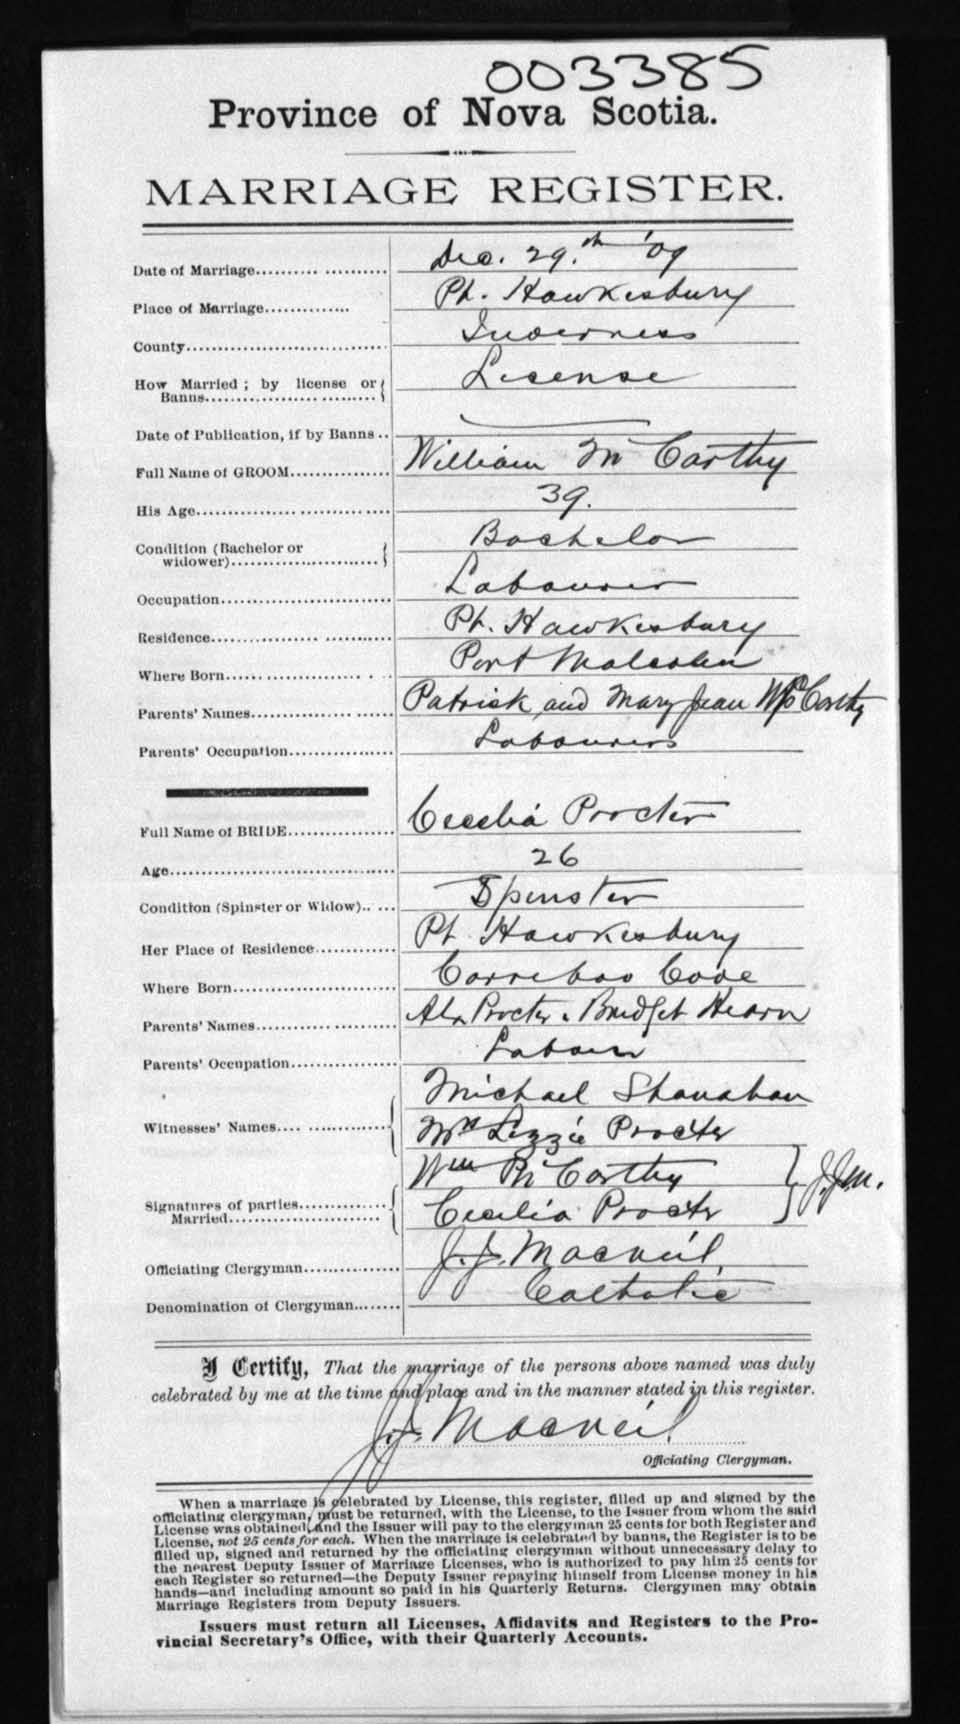 003385
Province of Nova Scotia.
MARRIAGE REGISTER.
Date of Marriage Dec. 29.th '09
Place of Marriage Pt. Hawkesbury
County Inverness
How Married ; by license or Banns License
Date of Publication, if by Banns
Full Name of GROOM William McCarthy
His Age 39.
Condition (Bachelor or widower) Bachelor
Occupation Labourer
Residence Pt. Hawkesbury
Where Born Port Malcolm
Parents' Names Patrick and Mary Jean McCarthy
Parents' Occupation Labourers
Full Name of BRIDE Cecelia Procter
Age 26
Condition (Spinster or Widow) Spinster
Her Place of Residence Pt Hawkesbury
Where Born Carreboo Cove
Parents' Names Alx Procter & Bridget Hearn
Parents' Occupation Labour
Witnesses' Names Michael Shanahan
Mrs Lizzie Procter
Signatures of parties Married Wm McCarthy
Cecilia Procter J.J.M.
Officiating Clergyman J. J. Macneil
Denomination of Clergyman Catholic
I Certify, That the marriage of the persons above named was duly
celebrated by me at the time and place and in the manner stated in this register.
J. J. Macneil
Officiating Clergyman.
When a marriage is celebrated by License, this register, filled up and signed by the
officiating clergyman, must be returned, with the License, to the Issuer from whom the said
License was obtained, and the Issuer will pay to the clergyman 25 cents for both Register and
License, not 25 cents for each. When the marriage is celebrated by banns, the Register is to be
filled up, signed and returned by the officiating clergyman without unnecessary delay to
the nearest Deputy Issuer of Marriage Licenses, who is authorized to pay him 25 cents for
each Register so returned—the Deputy Issuer repaying himself from License money in his
hands—and including amount so paid in his Quarterly Returns. Clergymen may obtain
Marriage Registers from Deputy Issuers.
Issuers must return all Licenses, Affidavits and Registers to the Pro-
vincial Secretary's Office, with their Quarterly Accounts.